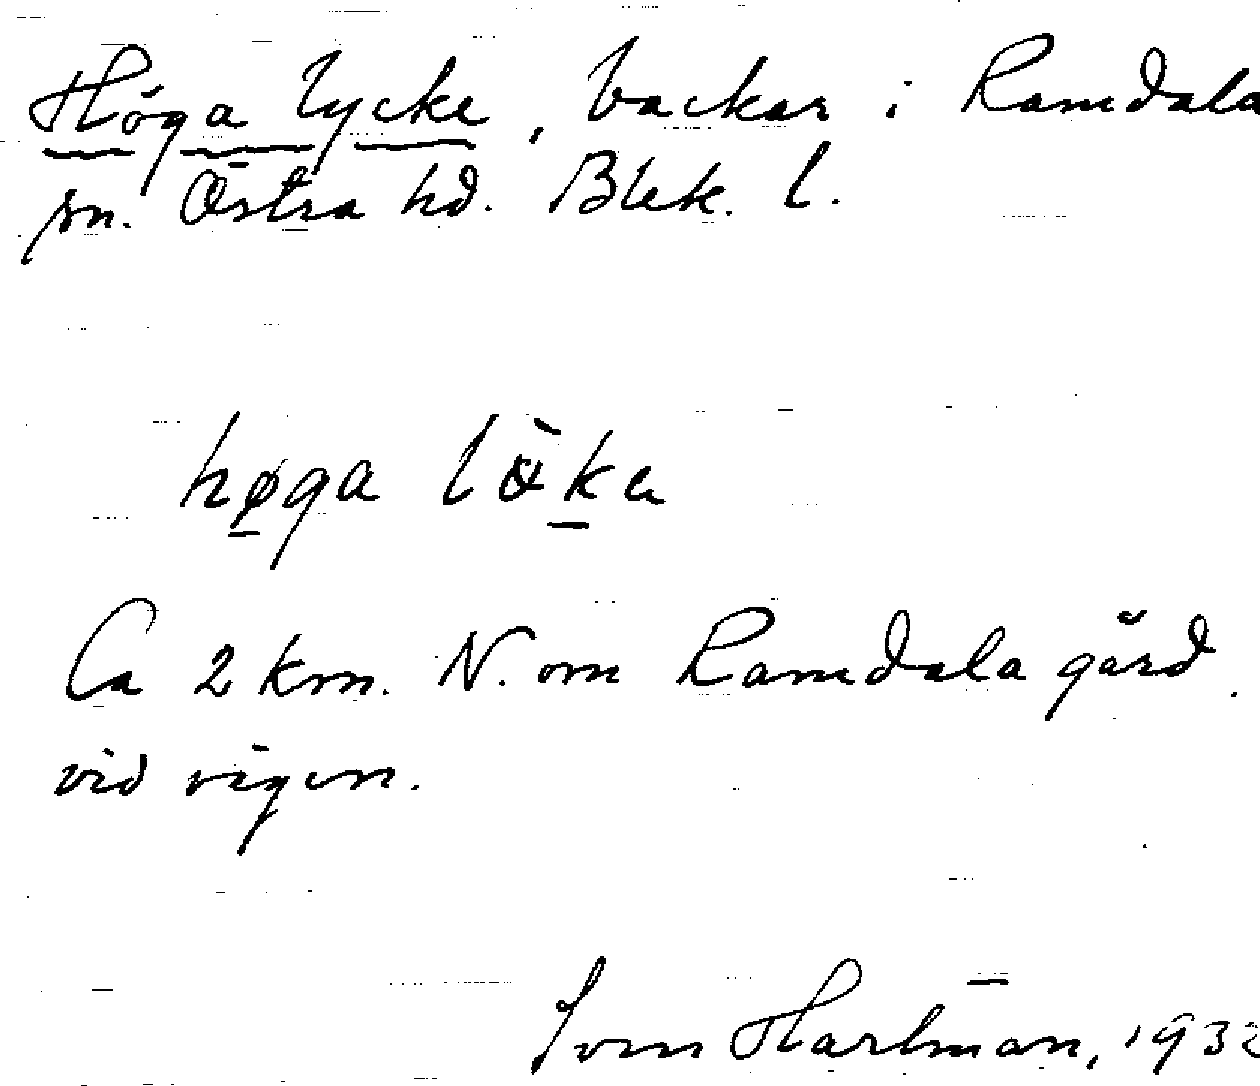 Höga lycke, backar i Ramdala
sn. Östra hd. Blek. l.
Ca 2 km. N. om Ramdala gård.
vid vägen.
Hartman, 1932